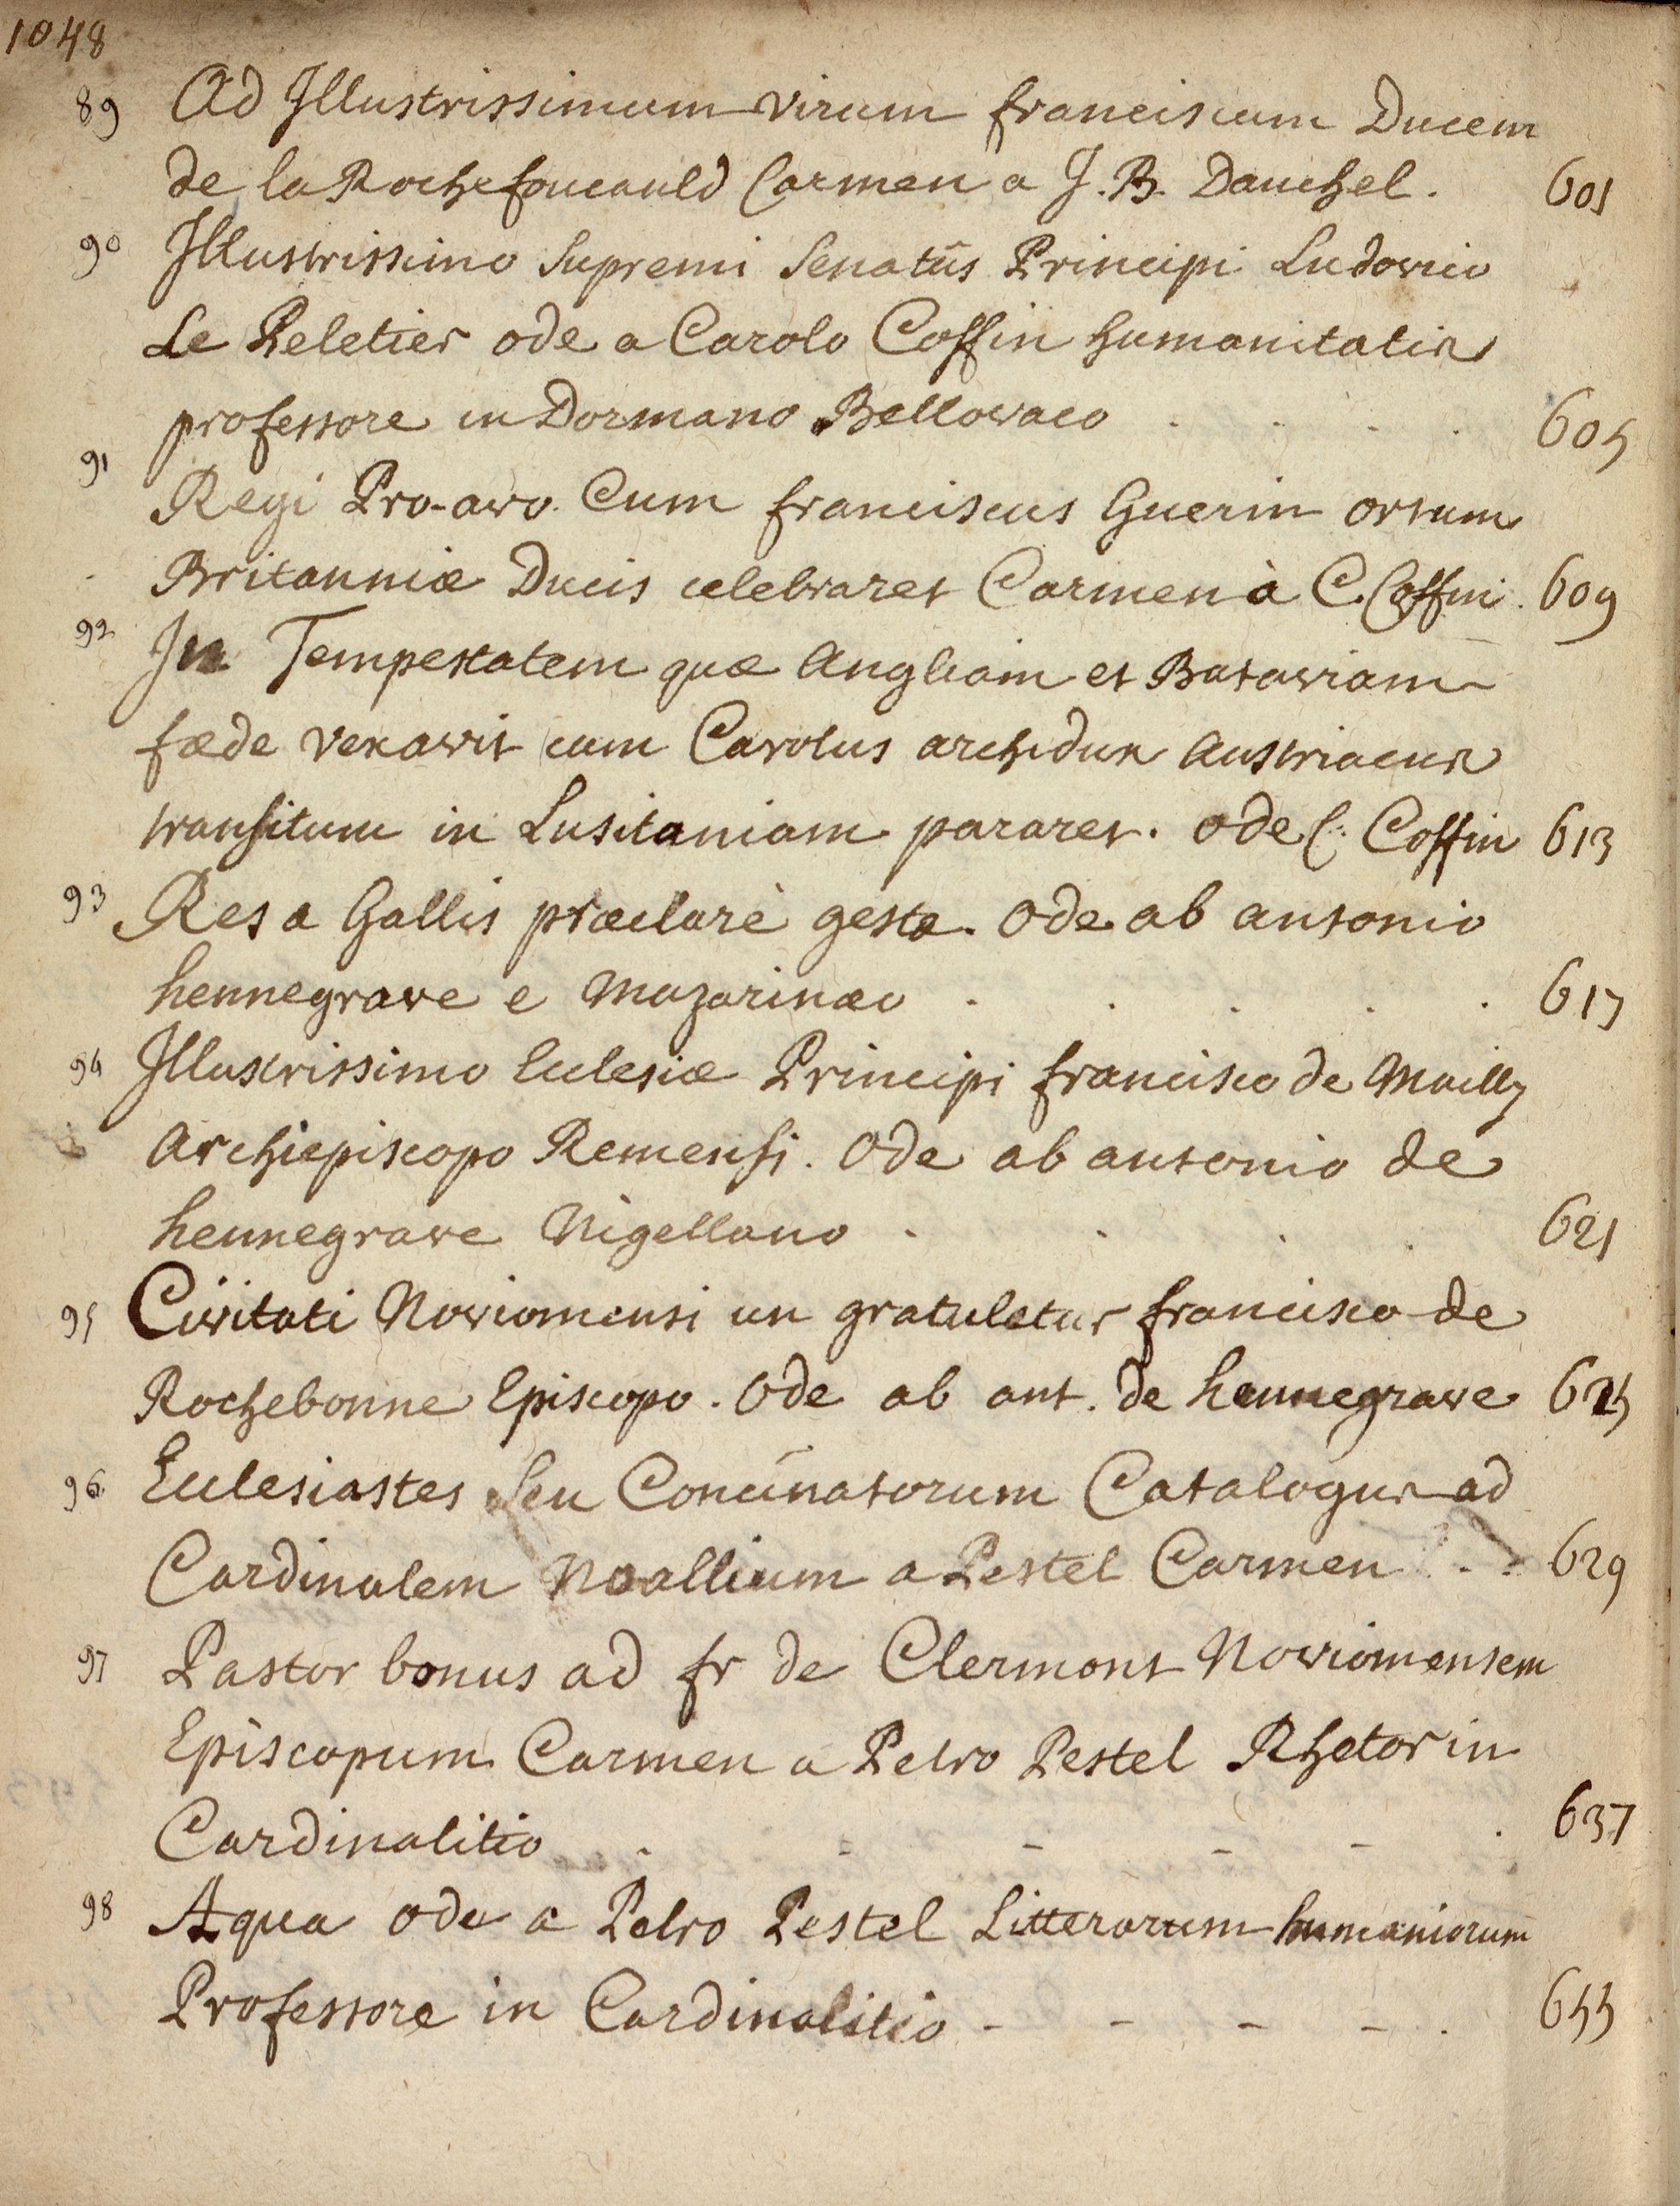 1048
89 Ad Illustrissimum virum franciscum Ducem
de la Rochefoucauld Carmen a J. B. Dauchel. 601
90 Illustrissimo Supremi Senatûs Principi Ludovico
Le Peletier ode a Carolo Coffin humanitatis
professore in Dormano Bellovaco . . . . 605
91 Regi Pro-avo. Cum franciscus Guerin ortum
Britanniæ Ducis celebraret Carmen à C. Coffin. 609
92 In Tempestatem quæ Angliam et Bataviam
fæde vexavit cum Carolus archidux Austriacus
transitum in Lusitaniam pararet. ode C. Coffin 613
93 Res a Gallis præclarè gestæ. Ode ab antonio
hennegrave e Mazarinæo . . . . . 617
94 Illustrissimo Ecclesiæ Principi francisco de Mailly
Archiepiscopo Remensi. Ode ab antonio de
hennegrave Nigellano . . . . 621
95 Civitati Noviomensi un gratuletur francisco de
Rochebonne Episcopo. Ode ab ant. de hennegrave 625
96 Ecclesiastes Seu Concinatorum Catalogus ad
Cardinalem Noallium a Pestel Carmen . . 629
97 Pastor bonus ad fr de Clermont Noviomensem
Episcopum Carmen a Petro Pestel Rhetor in
Cardinalitio . - - - - . 637
98 Aqua ode a Petro Pestel Litterarum humaniorum
Professore in Cardinalitio - - - - . 655